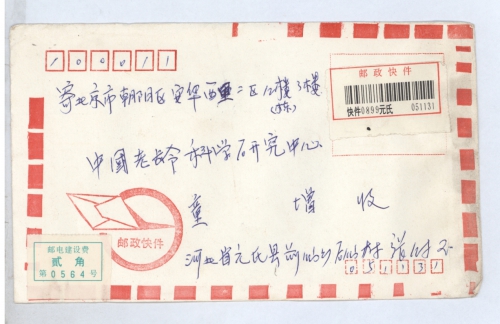 100011
邮政快件
快件0899元氏 051131
寄北京市朝阳区安华西里二区12楼3楼
(栋)
中國老龄科学研究中心
童 增 收
邮政快件
邮电建设费
贰角
第0564号
河北省元氏县前
051131